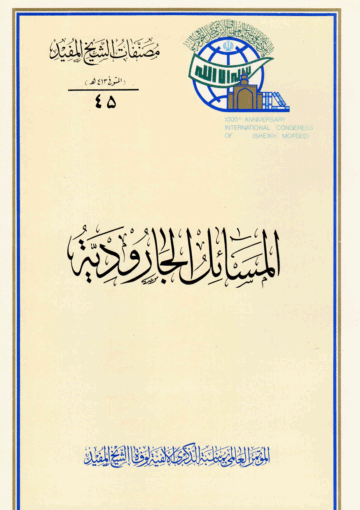 مصنفات الشيخ المفيد
(المتوفى ٤١٣ هـ)
٤٥
لا إله إلا الله
1000th ANNIVERSARY
INTERNATIONAL CONGRESS
OF (SHEIKH MOFEED)
المسائل الجارودية
المؤتمر العالمي بمناسبة الذكرى الألفية لوفاة الشيخ المفيد